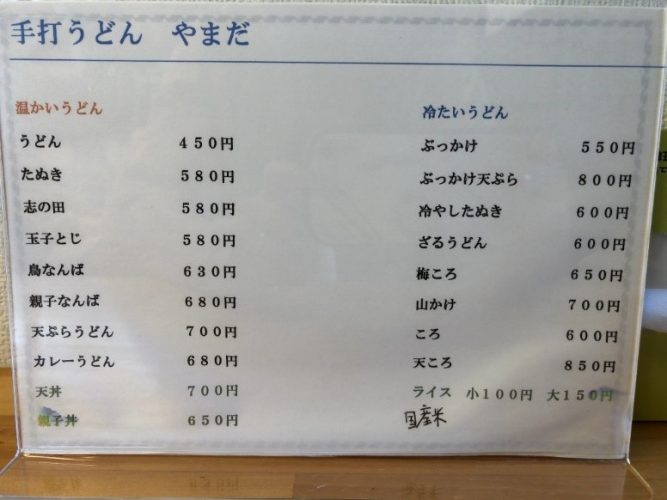 手打うどん　やまだ
温かいうどん
うどん　４５０円
たぬき　５８０円
志の田　５８０円
玉子とじ　５８０円
鳥なんば　６３０円
親子なんば　６８０円
天ぷらうどん　７００円
カレーうどん　６８０円
天丼　７００円
親子丼　６５０円
冷たいうどん
ぶっかけ　５５０円
ぶっかけ天ぷら　８００円
冷やしたぬき　６００円
ざるうどん　６００円
梅ころ　６５０円
山かけ　７００円
ころ　６００円
天ころ　８５０円
ライス　小１００円　大１５０円
国産米